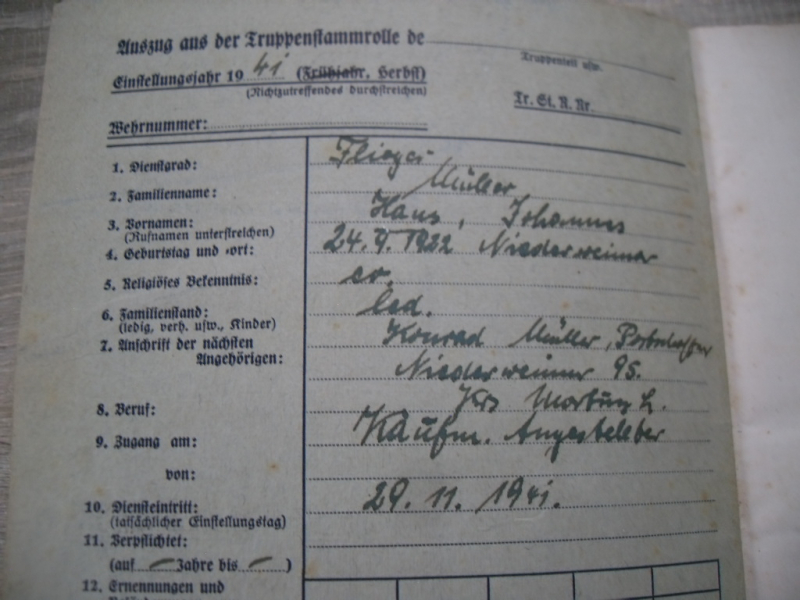 Auszug aus der Truppenstammrolle de
Truppenteil usw.
Einstellungsjahr 19 41 (Frühjahr, Herbst)
(Nichtzutreffendes durchstreichen)
Tr. St. R. Nr.
Wehrnummer:
1. Dienstgrad: Flieger
2. Familienname: Müller
3. Vornamen: Hans, Johannes
(Rufnamen unterstreichen)
4. Geburtstag und -ort: 24. 1922 Niederweimar
5. Religiöses Bekenntnis: ev.
6. Familienstand: led.
(ledig, verh. usw., Kinder)
7. Anschrift der nächsten Konrad Müller, Postschaffner
Angehörigen: Niederweimar 95.
Krs Marburg L.
8. Beruf: Kaufm. Angestellter
9. Zugang am:
von:
10. Diensteintritt: 29. 11. 1941.
(tatsächlicher Einstellungstag)
11. Verpflichtet:
(auf — Jahre bis — )
12. Ernennungen und